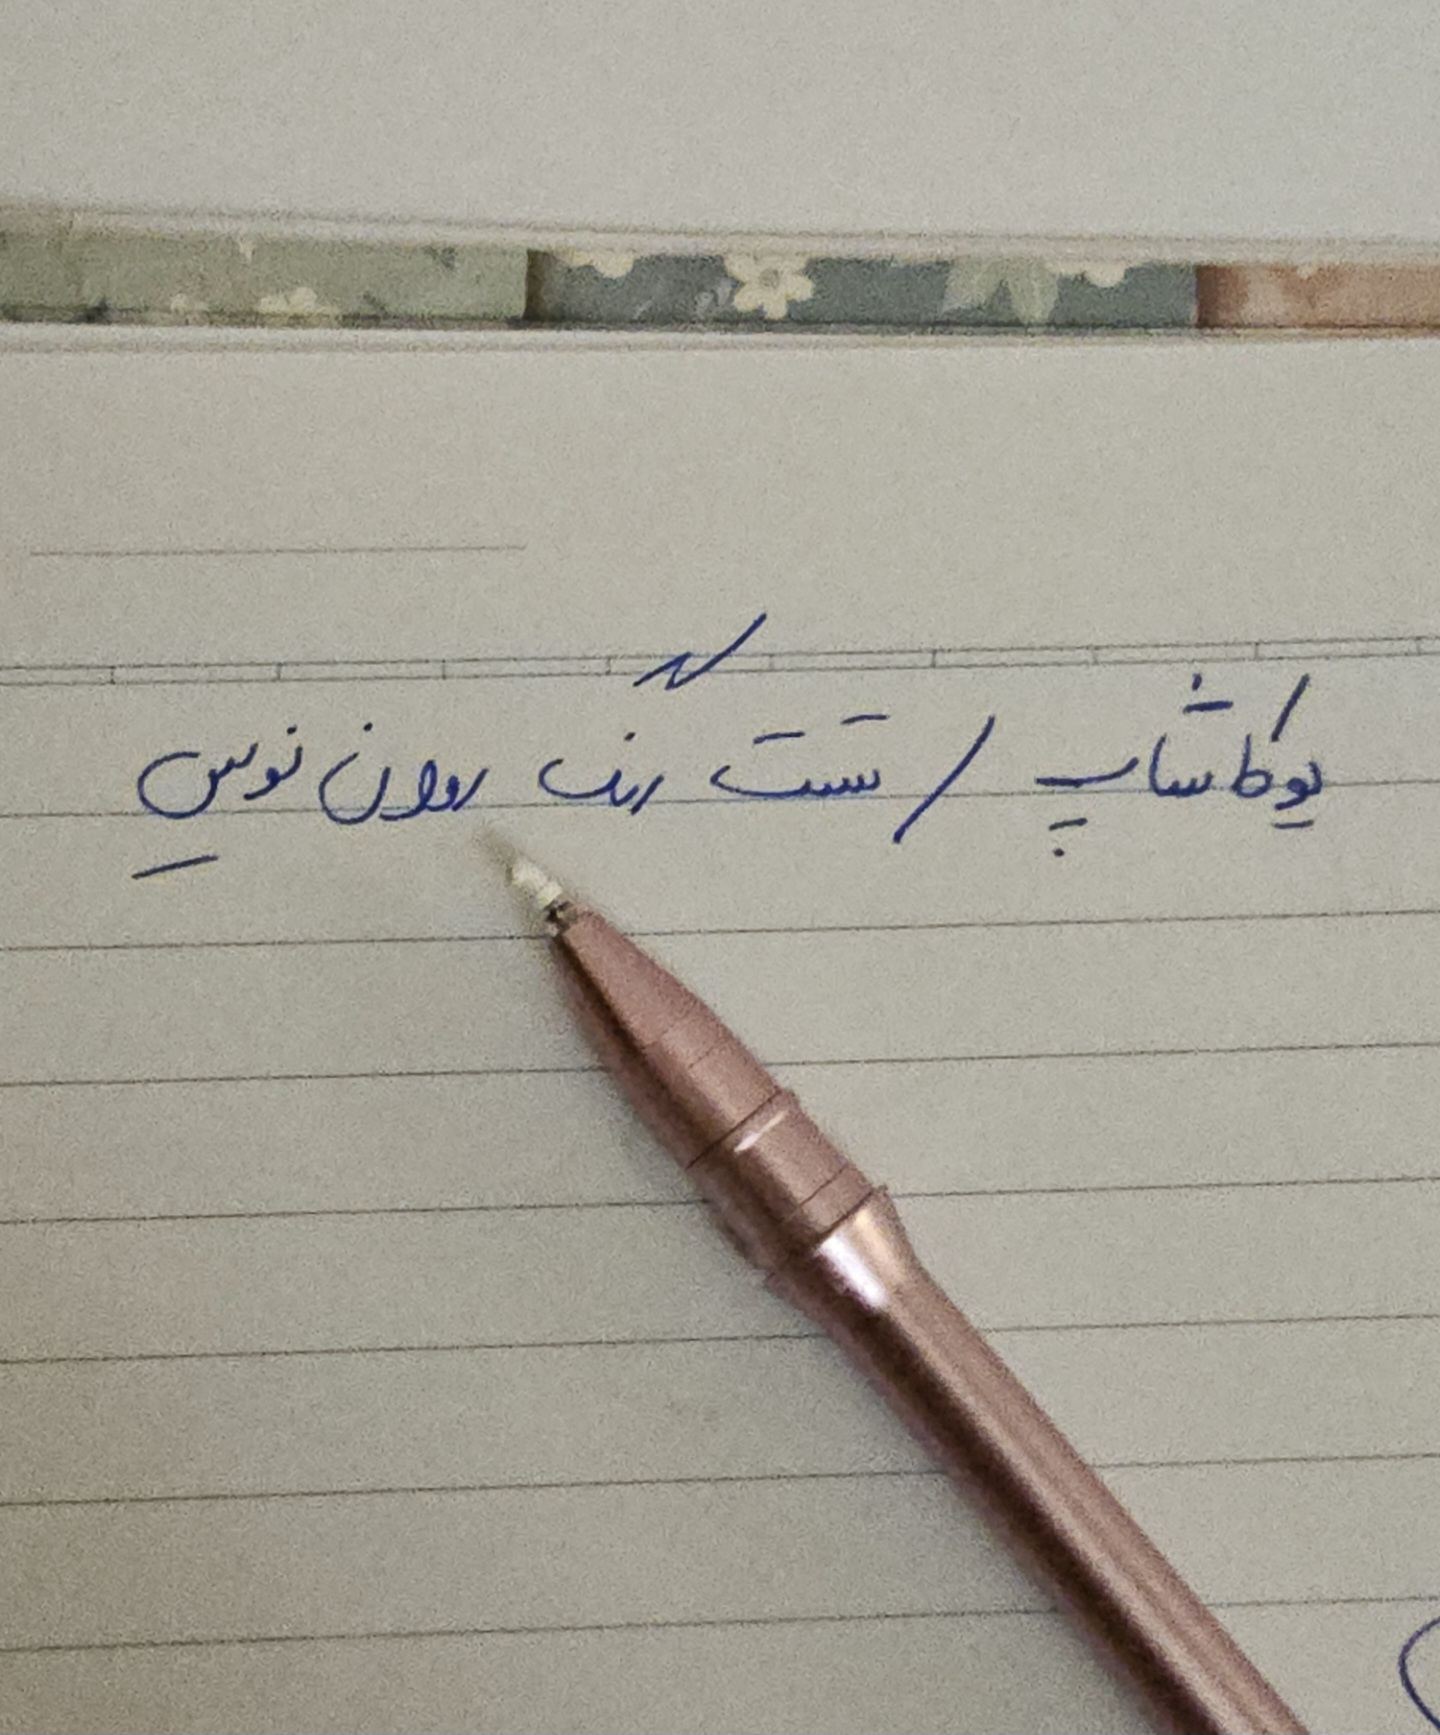 یوکاشاپ / تست رنگ روان نویس